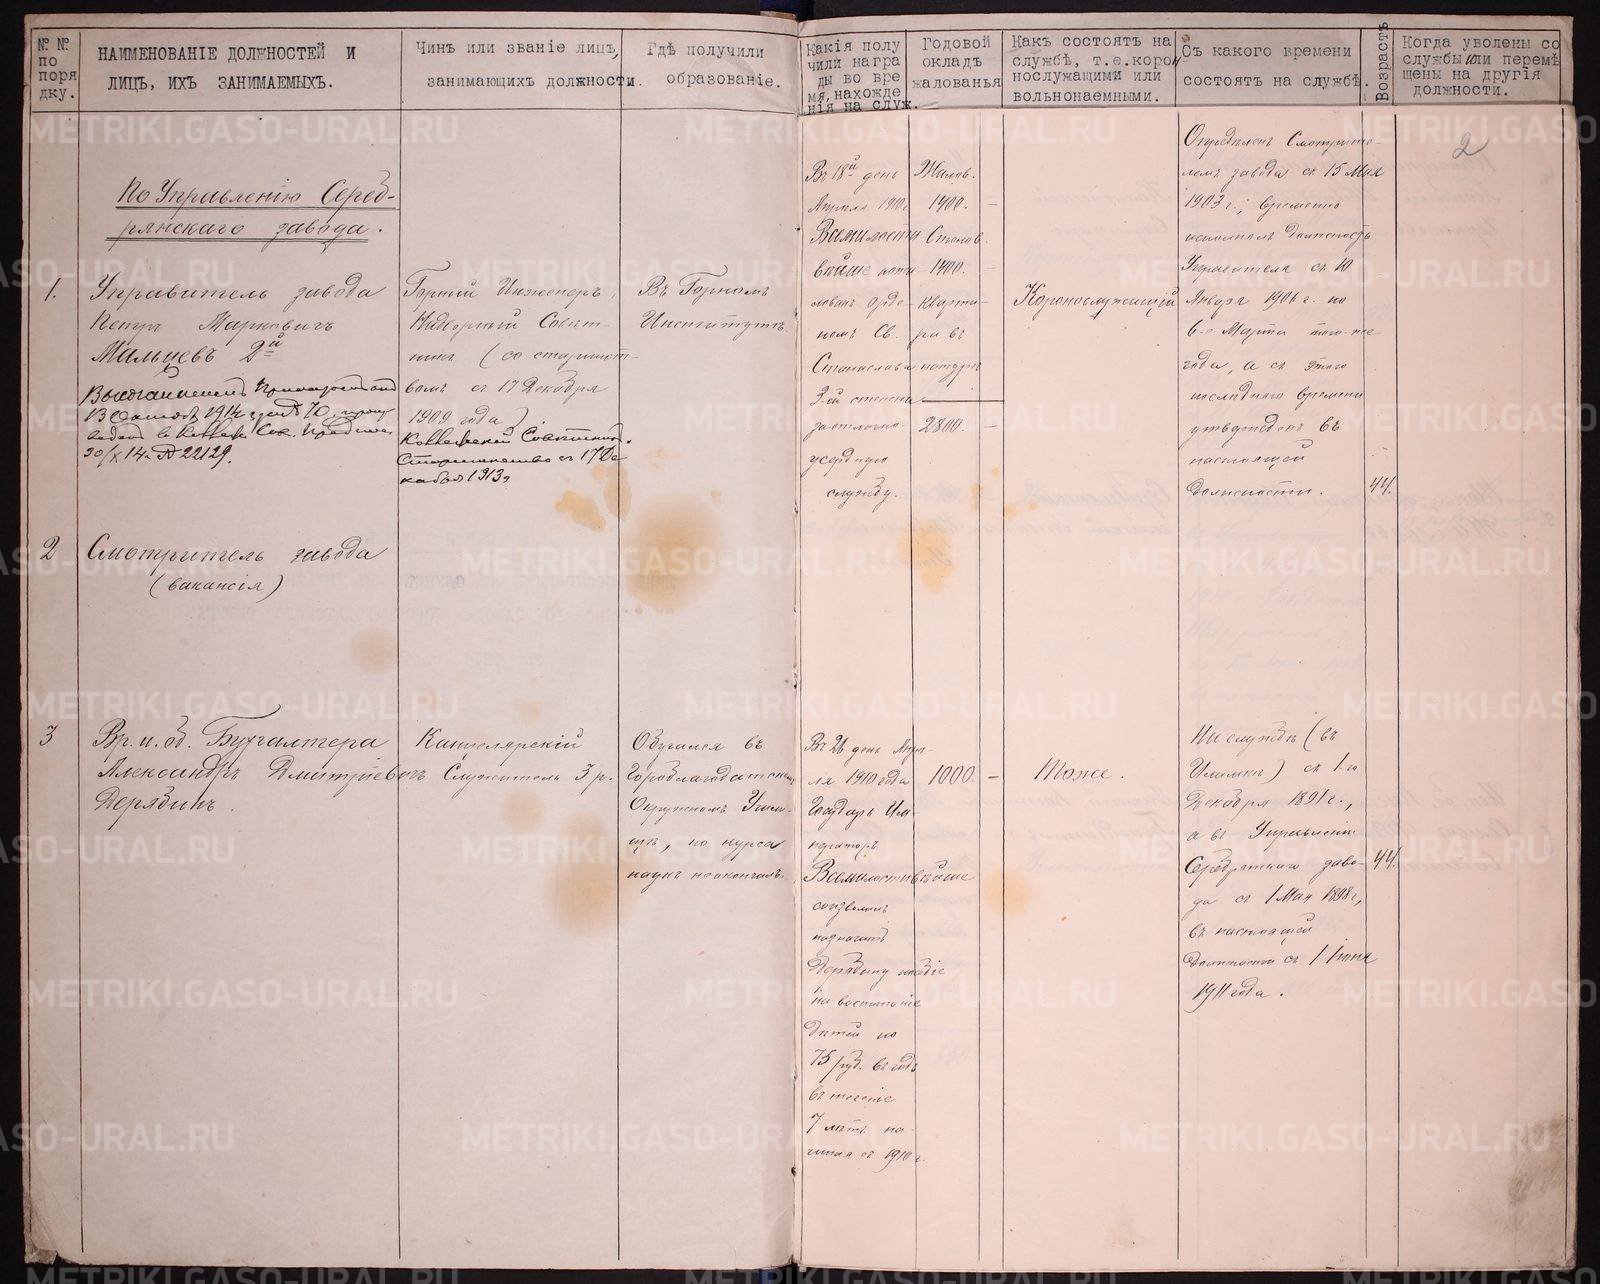 № №
по
поря
дку.
НАИМЕНОВАНІЕ ДОЛЖНОСТЕЙ И
ЛИЦЪ, ИХЪ ЗАНИМАЕМЫХЪ.
Чинъ или званіе лицъ,
занимающихъ должности.
Гдѣ получили
образованіе.
Какія полу
чили награ
ды во вре
мя, нахожде
нія на служ.
Годовой
окладъ
жалованья
Какъ состоятъ на
службѣ, т.е.корон
нослужащими или
вольнонаемными.
Съ какого времени
состоятъ на службѣ.
Возрастъ
Когда уволены со
службы или перемѣ
щены на другія
должности.
2
По Управленію Сереб-
рянскаго завода.
1.
Управитель завода
Петръ Марковичъ
Мальцевъ 2й
Высочайшимъ Приказомъ
1914 г. за № 70, произ-
веденъ в Коллеж. Сов.
30/X 14 г. № 22129.
Горный Инженеръ,
Надворный Совѣт-
никъ (со старшинст-
вомъ съ 17 Декабря
1909 года)
Коллежскій Совѣтникъ.
Старшинство съ 17 Де
кабря 1913 г
Въ Горномъ
Институтѣ
Въ 18й день
Апрѣля 1910 г
Всемилости
вѣйше пожа-
лованъ орде-
номъ Св.
Станислава
3-ей степени
за отлично-
усердную
службу.
Жалов.
1400. —
Столов.
1400. —
Кварти-
ра въ
натурѣ
2800. —
Короннослужащій
Опредѣленъ Смотрите-
лемъ завода съ 15 Мая
1903 г.; временно
исполнялъ должность
Управителя съ 10
Января 1906 г. по
6-е Марта того-же
года, а съ этого
послѣдняго времени
утвержденъ въ
настоящей
должности.
44.
2
Смотритель завода
(вакансія)
3
Вр. и. об. Бухгалтера
Александръ Дмитріевичъ
Дерябинъ.
Канцелярскій
Служитель 3 р.
Обучался въ
Гороблагодатскомъ
Окружномъ Учили-
щѣ, но курса
наукъ не окончилъ.
Въ 26 день Апрѣ-
ля 1910 года
Государь Им-
ператоръ
Всемилостивѣйше
соизволилъ
назначить
Дерябину пособіе
на воспитаніе
дѣтей по
75 руб. въ годъ
въ теченіе
7 лѣтъ на-
чиная съ 1910 г.
1000. —
Тоже.
На службѣ (въ
Илимкѣ) съ 1-го
Декабря 1891 г.,
а въ Управленіи
Серебрянскаго заво-
да съ 1 Мая 1898 г.,
въ настоящей
должности съ 1 Іюня
1911 года.
44.